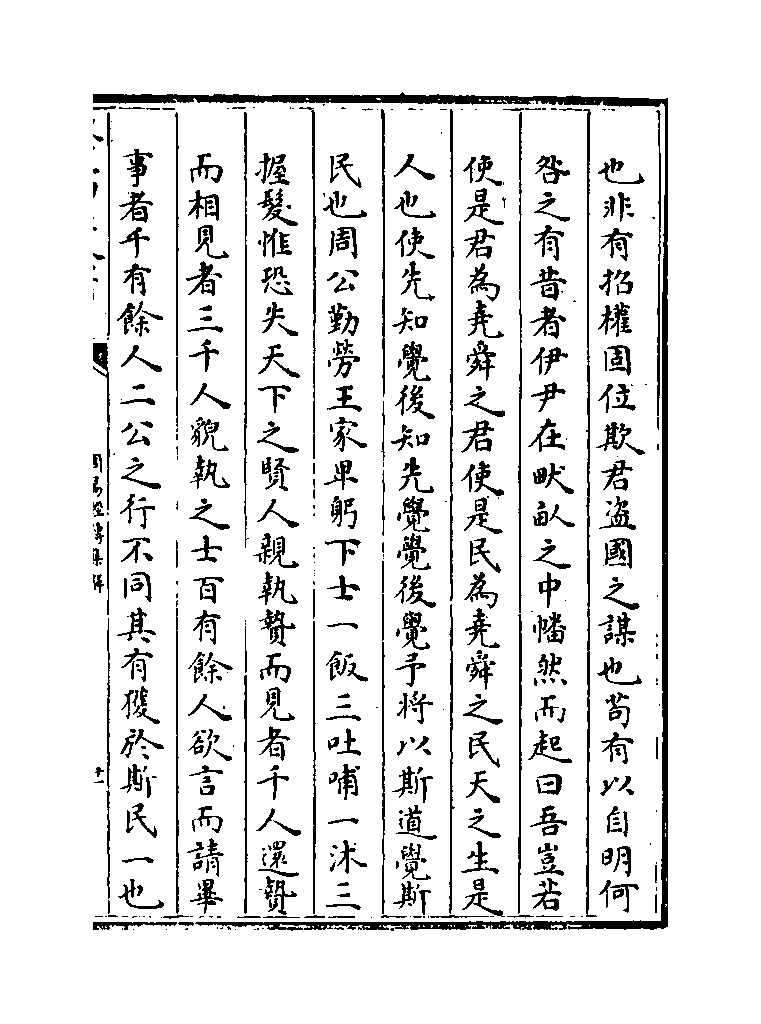 也非有招權固位欺君盗國之謀也茍有以自明何
咎之有昔者伊尹在畎畝之中幡然而起曰吾豈若
使是君為堯舜之君使是民為堯舜之民天之生是
人也使先知覺後知先覺覺後覺予將以斯道覺斯
民也周公勤勞王家卑躬下士一飯三吐哺一沐三
握髮惟恐失天下之賢人親執贄而見者千人還贄
而相見者三千人貌執之士百有餘人欲言而請畢
事者千有餘人二公之行不同其有獲於斯民一也
周易經傳集解
十一